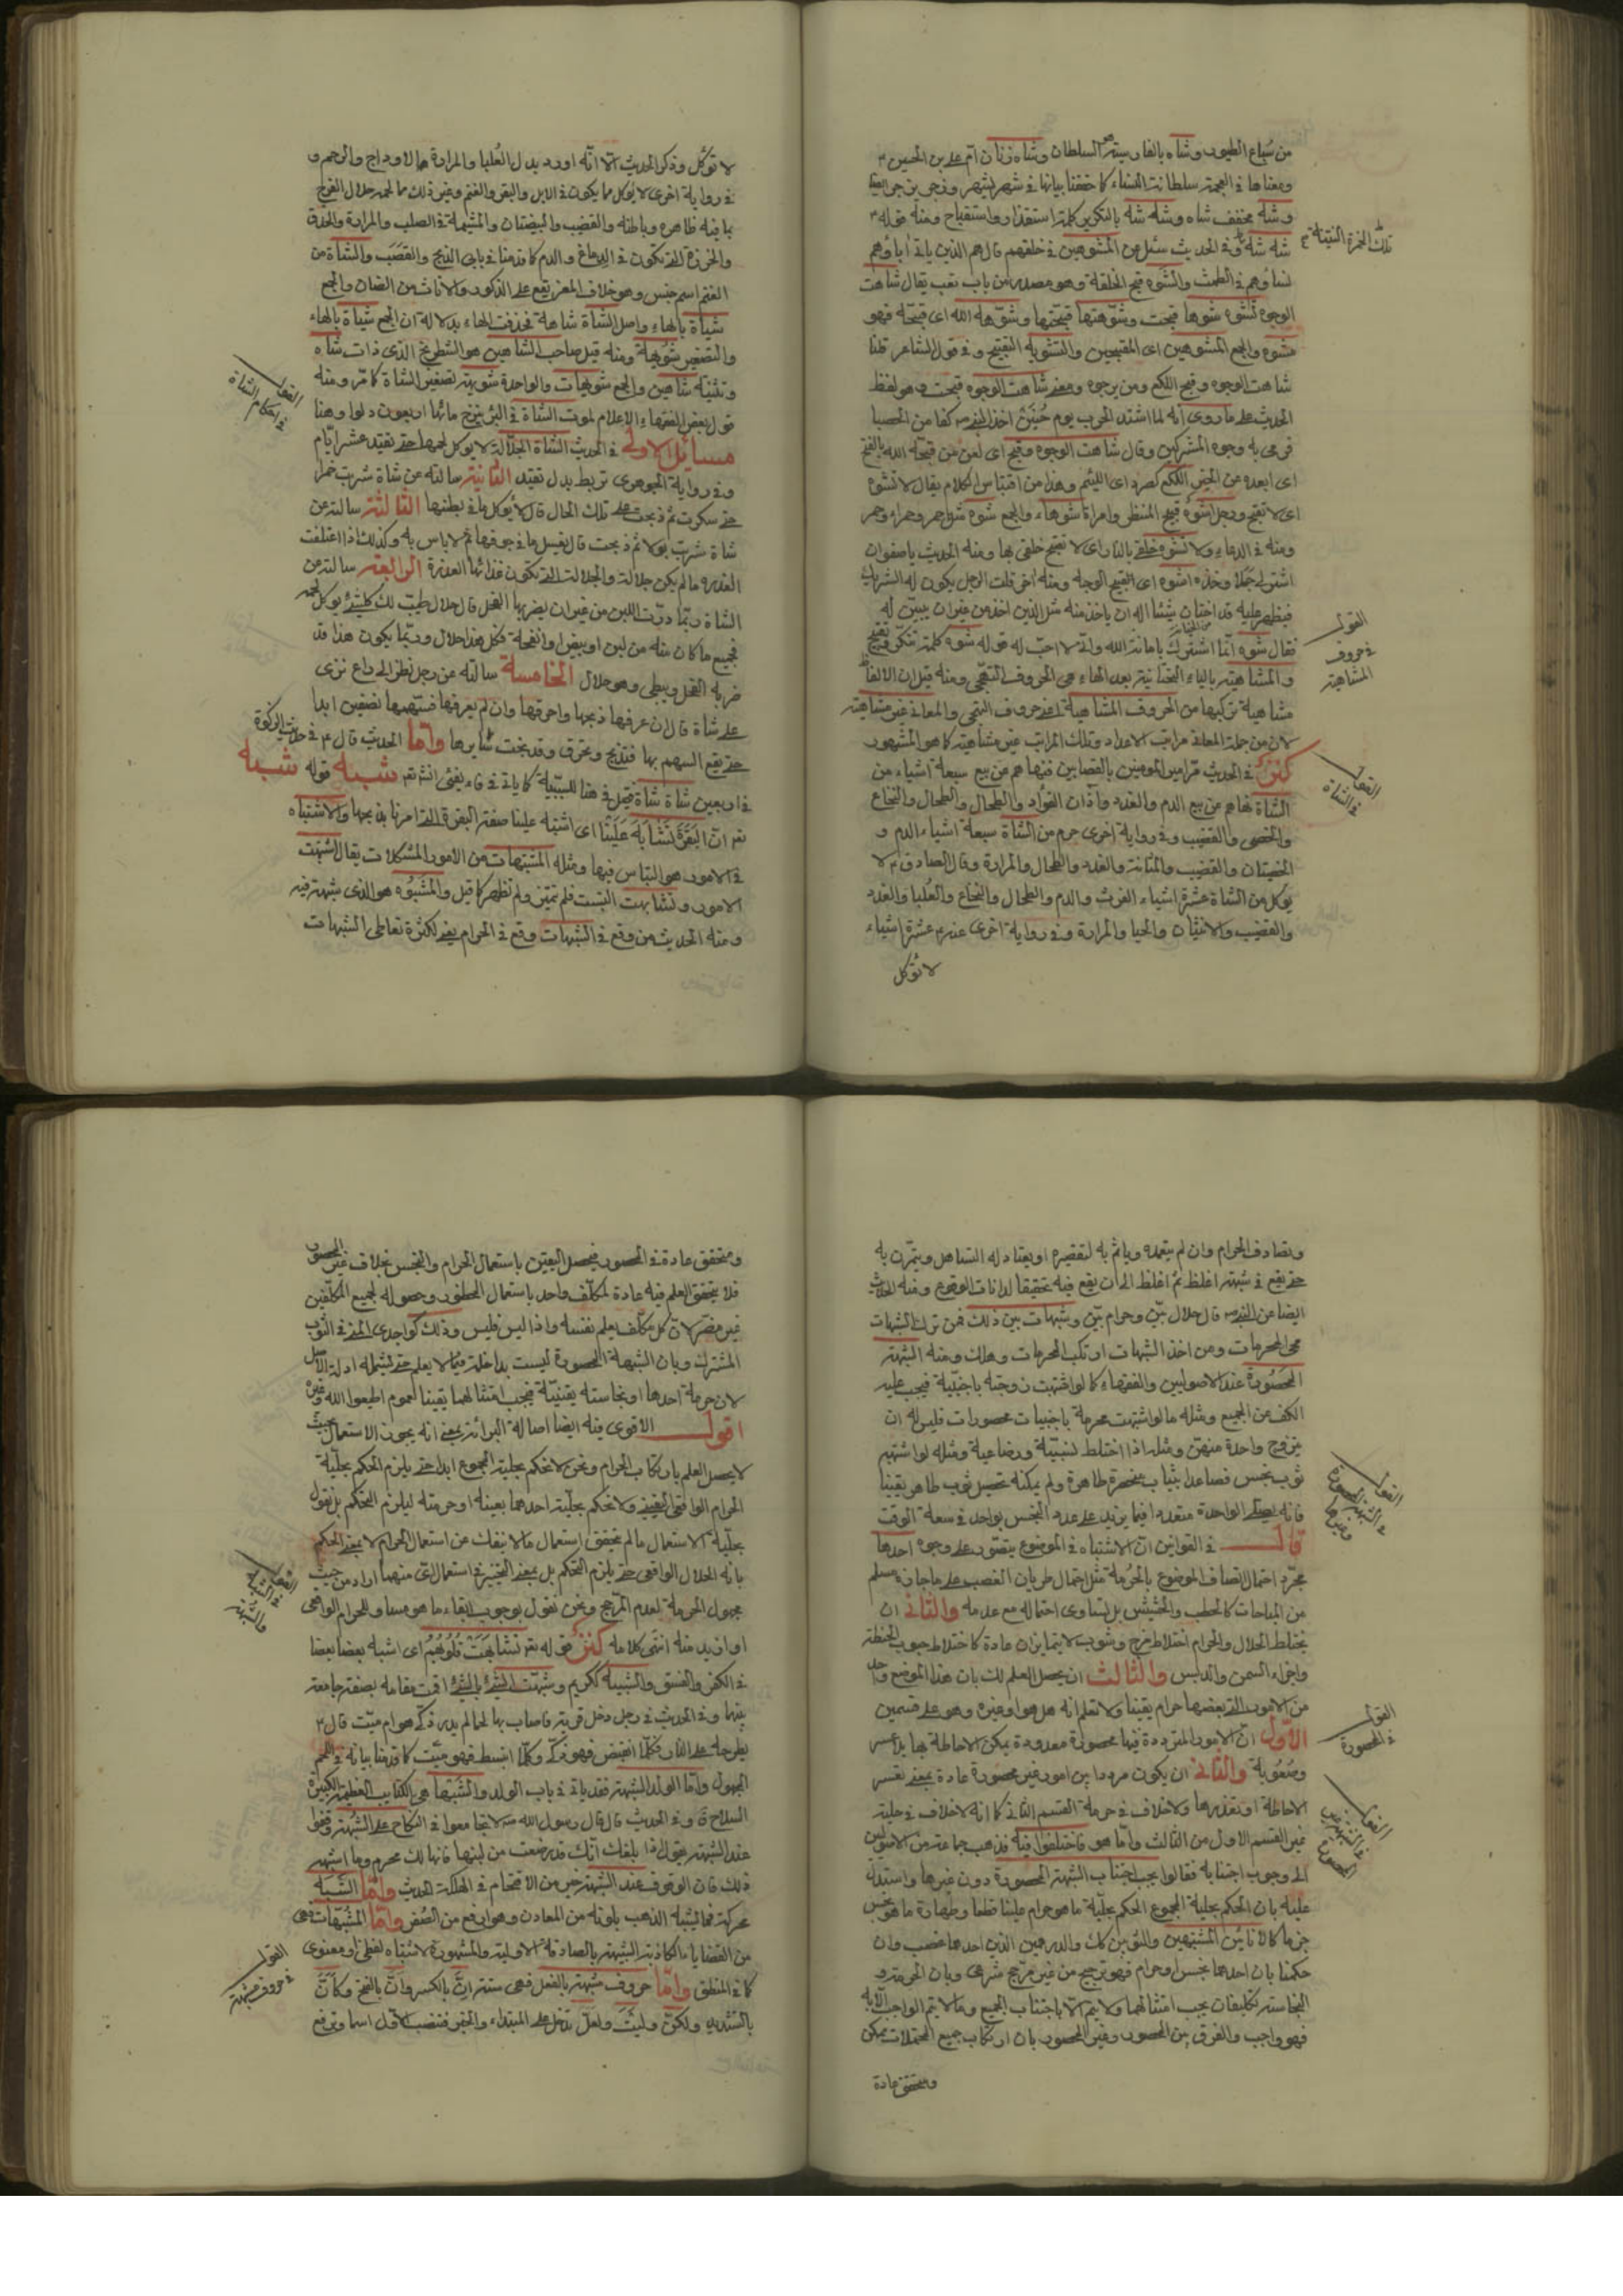 من سباع الطيور وشاه بالفارسية السلطان وشاه زنان ام علي بن الحسين
ومعناها في العجمة سلطانة النساء كما حققنا بيانها في شهر
وشه مخفف شاه وشه شه بالتكرير كلمة استقذار واستقباح ومنه قوله
شه شه تلك الخمرة النتنة
وفي الحديث سئل عن المشوهين في خلقهم قال هم الذين ياتي اباؤهم
نساؤهم في الطمث والشوه قبح الخلقة وهو مصدر من باب تعب يقال شاهت
الوجوه تشوه شوها قبحت وشوهتها قبحتها وشوهه الله اي قبحه فهو
مشوه والجمع المشوهين اي المقبحين والتشويه التقبيح وفي قول الشاعر قلنا
شاهت الوجوه وقبح اللكع ومن يرجوه ومعنى شاهت الوجوه قبحت وهو لفظ
الحديث على ما روي انه لما اشتد الحرب يوم حنين اخذ النبي ص كفا من الحصبا
فرمى به وجوه المشركين وقال شاهت الوجوه وقبح اي لعن من قبحه الله بالفتح
اي ابعده من الخير اللكع كصرد اي اللئيم وهذا من اقتباس الكلام يقال لا تشوه
اي لا تقبح ورجل اشوه قبيح المنظر وامراة شوهاء والجمع شوه مثل احمر وحمراء وحمر
ومنه في الدعاء ولا تشوه خلقي بالنار اي لا تقبح خلقي بها ومنه الحديث يا صفوان
اشتر لي جملا وخذه اشوه اي القبيح الوجه ومنه اخر قلت الرجل يكون له الشريك
فيظهر عليه قد اختان شيئا اله ان ياخذ منه مثل الذي اخذ من غير ان يبين له
فقال شوه انما اشتركا بامانة الله واني لا احب له قوله شوه كلمة تنكر وتقبيح
القول في حروف المشافهة
لان من جملة المعاني مراتب الاعداد وتلك المراتب غير متناهية كما هو المشهور
كنز في الحديث مر امير المومنين بالقصابين فنهاهم عن بيع سبعة اشياء من
الشاة نهاهم عن بيع الدم والغدد وآذان الفؤاد والطحال والنخاع
والخصى والقضيب وفي رواية اخرى حرم من الشاة سبعة اشياء الدم و
الخصيتان والقضيب والمثانة والغدد والطحال والمرارة وقال الصادق لا
يوكل من الشاة عشرة اشياء الفرث والدم والطحال والنخاع والعلبا والغدد
والقضيب والانثيان والحيا والمرارة وفي رواية اخرى عنه عشرة اشياء
لا توكل
القول في الشاة
لا توكل وذكر الحديث الا انه اورد بدل العلبا والمرارة الاوداج والرحم و
في رواية اخرى لا يوكل مما يكون في الابل والبقر والغنم وغير ذلك مما لحمه حلال الفرج
بما فيه ظاهره وباطنه والقضيب والبيضتان والمشيمة في الصلب والمرارة والحدق
والخرزة التي تكون في الدماغ والدم كما قدمنا في بابي الذبح والقصب والشاة من
الغنم اسم جنس وهو خلاف المعز يقع على الذكور والاناث من الضان والجمع
شياة بالهاء واصل الشاة شاهة فحذفت الهاء بدلالة ان الجمع شياة بالهاء
والتصغير شويهة ومنه قيل صاحب الشاهين هو الشطرنج الذي ذات شاه
وتثنيته شاهين والجمع شويهات والواحدة شويهة تصغير الشاة كما مر ومنه
قول بعض الفقهاء الاعلام لموت الشاة في البئر ينزح مائها اربعون دلوا وهنا
مسائل الاولى في الحديث الشاة الجلالة لا يوكل لحمها حتى تقيد عشر ايام
وفي رواية الجوهري تربط بدل تقيد الثانية سالته عن شاة شربت خمرا
حتى سكرت ثم ذبحت على تلك الحال قال لا يوكل ما في بطنها الثالثة سالته عن
شاة شربت بولا ثم ذبحت قال يغسل ما في جوفها ثم لا باس به وكذلك اذا اعتلفت
العذرة ما لم يكن جلالة والجلالة التي تكون غذائها العذرة الرابعة سالته عن
الشاة ربما درت اللبن من غير ان يضربها الفحل قال حلال طيب لك كل شيء يوكل لحمه
فجميع ما كان منه من لبن او بيض او انفحة فكل هذا حلال وربما يكون هذا قد
ضربه الفحل ويبطي وهو حلال الخامسة سالته عن رجل نظر الى راع نزى
على شاة قال ان عرفها ذبحها واحرقها وان لم يعرفها قسمها نصفين ابدا
حتى يقع السهم بها فتذبح وتحرق وقد نجت سايرها واما الحديث قال في خمس الزكوة
في اربعين شاة شاة قيل في هنا للسببية كما ياتي في فاء يفئ انشتم شبه قوله
تعر ان البقر تشابه علينا اي اشتبه علينا صفة البقرة التي امرنا بذبحها والاشتباه
في الامور هو التباس فيها ومثله المشتبهات من الامور المشكلات يقال اشتبهت
الامور وتشابهت التبست فلم تتميز ولم تظهر كما قيل والمشبوه هو الذي شبهة فيه
ومنه الحديث من وقع في الشبهات وقع في الحرام يعني لكثرة تعاطي الشبهات
القول في احكام الشاة
وتصادف الحرام وان لم يتعمده وياثم به لتقصيره او يعتاد له التساهل ويتمرن به
حتى يقع في شبهة اغلظ ثم اغلظ الى ان يقع فيه تحقيقا لمداناة الوقوع ومنه الحديث
ايضا عن النبي ص قال حلال بين وحرام بين وشبهات بين ذلك فمن ترك الشبهات
نجى المحرمات ومن اخذ الشبهات ارتكب المحرمات وهلك ومنه الشبهة
المحصورة عند الاصوليين والفقهاء كما لو اشتبهت زوجته باجنبية فيجب عليه
الكف عن الجميع ومثله ما لو اشتبهت محرمة باجنبيات محصورات فليس له ان
يتزوج واحدة منهن ومثله اذا اختلط نسبية ورضاعية ومثله لو اشتبه
ثوب نجس فصاعدا بثياب منحصرة طاهرة ولم يمكنه تحصيل ثوب طاهر يقينا
فانه يصلي الواحدة متعددا فيما يزيد على عدد النجس بواحد في سعة الوقت
قال في القوانين ان الاشتباه في الموضوع يتصور على وجوه احدها
مجرد احتمال اتصاف الموضوع بالحرمة مثل احتمال طريان الغصب على ما جاز مسلم
من المباحات كالحطب والحشيش بل تساوى احتماله مع عدمه والثاني ان
يختلط الحلال والحرام اختلاط مزج وشوب لا يتمايزان عادة كاختلاط حبوب الحنطة
واجزاء السمن والدبس والثالث ان يحصل العلم لك بان هذا الموضع واحد
من الامور التي بعضها حرام يقينا ولا تعلم انه هل هو او غيره وهو على قسمين
الاول ان الامور المترددة فيها محصورة معدودة يمكن الاحاطة بها بلا عسر
وصعوبة والثاني ان يكون مرددا بين امور غير محصورة عادة بمعنى تعسر
الاحاطة او تعذرها ولا خلاف في حرمة القسم الثاني كما انه لا خلاف في حلية
غير القسم الاول من الثالث واما هو فاختلفوا فيه فذهب جماعة من الاصوليين
الى وجوب اجتنابه فقالوا يجب اجتناب الشبهة المحصورة دون غيرها واستدل
عليه بان الحكم بحلية المجموع الحكم بحلية ما هو حرام علينا قطعا وطهارة ما هو نجس
جزما كالانائين المشتبهين والثوبين كك والدرهمين الذين احدهما غصب وان
حكمنا بان احدهما نجس او حرام فهو ترجيح من غير مرجح شرعي وبان الحرمة و
النجاسة تكليفات يجب امتثالها ولا يتم الا باجتناب الجميع وما لا يتم الواجب الا به
فهو واجب والفرق بين المحصور وغير المحصور بان ارتكاب جميع المحتملات يمكن
ويتحقق عادة
القول في الشبهة المحصورة وغيرها
القول في المحصورة
القول في الشبهة غير المحصورة
ويتحقق عادة في المحصور فيحصل اليقين باستعمال الحرام والنجس بخلاف غير المحصور
فلا يتحقق العلم فيه عادة لمكلف واحد باستعمال المحظور وحصوله لجميع المكلفين
غير مضر لان كل مكلف يعلم نفسه واذا ليس فليس وذلك كواجدي المني في الثوب
المشترك وبان الشبهة المحصورة ليست بداخلة فيما لا يعلم حتى يشمله ادلة الاصل
لان حرمة احدها او نجاسته يقينية فيجب امتثالهما يقينا لعموم اطيعوا الله وغيره
اقول الاقوى فيه ايضا اصالة البرائة بمعنى انه يجوز الاستعمال بحيث
لا يحصل العلم بارتكاب الحرام ونحن لا نحكم بحلية المجموع ابدا حتى يلزم الحكم بحلية
الحرام الواقعي اليقيني ولا نحكم بحلية احدهما بعينه او حرمته ليلزم التحكم بل نقول
بحلية الاستعمال ما لم يتحقق استعمال ما لا ينفك عن استعمال الحرام لا بمعنى الحكم
بانه الحلال الواقعي حتى يلزم التحكم بل بمعنى التخيير في استعمال اي منهما اراد من حيث
مجهول الحرمة لعدم المرجح ونحن نقول بوجوب ابقاء ما هو مساو للحرام الواقعي
او ازيد منه انتهى كلامه كنز قوله تعر تشابهت قلوبهم اي اشبه بعضها بعضا
في الكفر والفسق والشبيه ككريم وشبهت الشئ بالشئ اقمت مقامه بصفة جامعة
بينهما وفي الحديث في رجل دخل قرية فاصاب بها لحما لم يدر ذكي هو ام ميت قال
يطرحه على النار فكلما انقبض فهو ذكي وكلما انبسط فهو ميت كما قدمنا بيانه في اللحم
المجهول واما الولد الشبهة فقد ياتي في باب الولد والشبهاء هي الكتايب العظيمة الكثيرة
السلاح وفي الحديث قال قال رسول الله ص لا تجامعوا في النكاح على الشبهة وقفوا
عند الشبهة يقول اذا بلغك انك قد رضعت من لبنها فانها لك محرم وما اشبه
ذلك فان الوقوف عند الشبهة خير من الاقتحام في الهلكة الحديث واما الشبه
محركة فما يشبه الذهب بلونه من المعادن وهو ارفع من الصفر واما المشبهات فهي
من القضايا الكاذبة الشبيهة بالصادقة الاولية والمشهورة لاشتباه لفظي ومعنوي
كما في المنطق واما حروف مشبهة بالفعل فهي ستة ان بالكسر وان بالفتح وكان
بالتشديد ولكن وليت ولعل تدخل على المبتداء والخبر فتنصب الاول اسما وترفع
القول في الشبه والشبهة
القول في حروف مشبهة